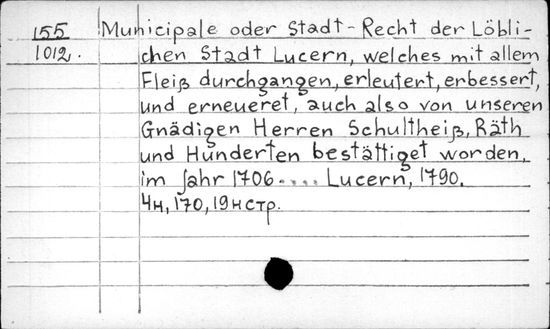 155 Municipale oder Stadt-Recht der Löbli-
1012. chen Stadt Lucern, welches mit allem
Fleiß durchgangen, erleutert, erbessert,
und erneueret, auch also von unseren
Gnädigen Herren Schultheiß, Räth
und Hunderten bestättiget worden,
im Jahr 1706.... Lucern, 1790.
4н, 170, 19н стр.